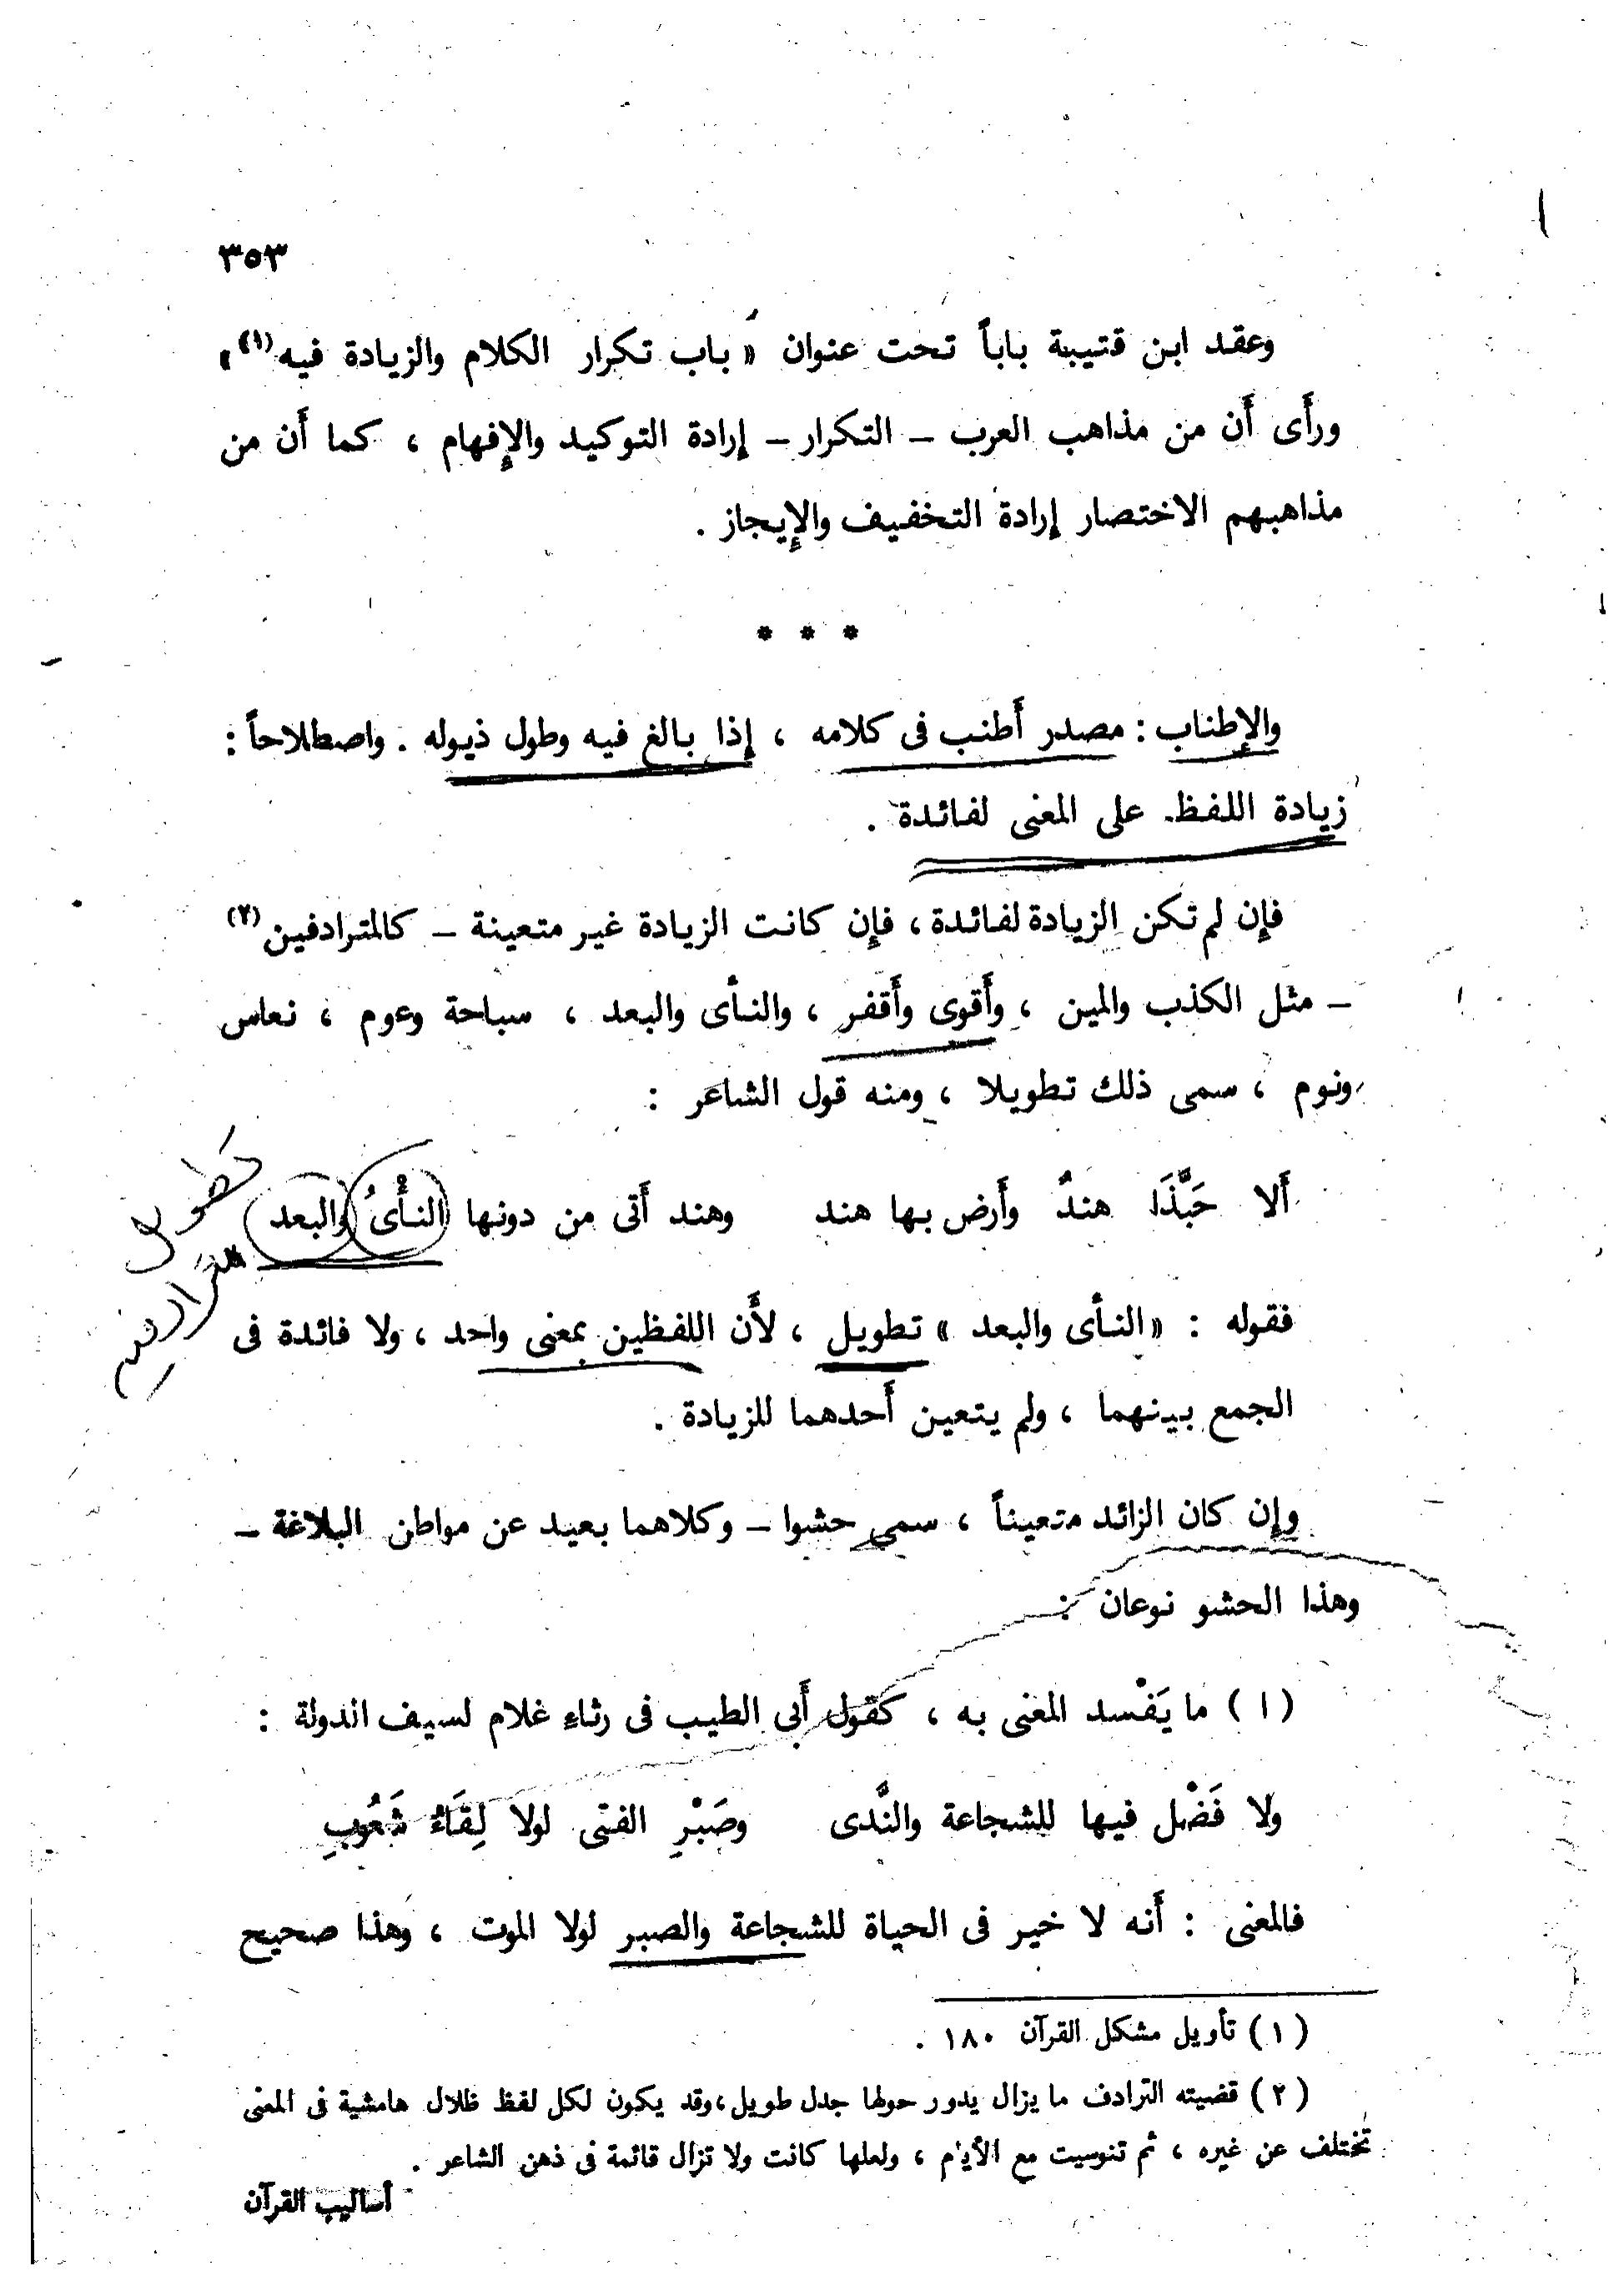 ٣٥٣
وعقد ابن قتيبة باباً تحت عنوان « باب تكرار الكلام والزيادة فيه(١) »
ورأَى أَن من مذاهب العرب – التكرار – إرادة التوكيد والإِفهام ، كما أَن من
مذاهبهم الاختصار إرادة التخفيف والإِيجاز .
* * *
والإِطناب : مصدر أَطنب فى كلامه ، إِذا بالغ فيه وطول ذيوله . واصطلاحاً :
زيادة اللفظ على المعنى لفائدة .
فإِن لم تكن الزيادة لفائدة ، فإِن كانت الزيادة غير متعينة – كالمترادفين(٢)
– مثل الكذب والمين ، وأَقوى وأَقفر ، والنأى والبعد ، سباحة وعوم ، نعاس
ونوم ، سمى ذلك تطويلا ، ومنه قول الشاعر :
أَلا حَبَّذَا هندٌ وأَرض بها هند وهند أَتى من دونها النأْىُ والبعد
فقوله : « النأى والبعد » تطويل ، لأَن اللفظين بمعنى واحد ، ولا فائدة فى
الجمع بينهما ، ولم يتعين أَحدهما للزيادة .
وإِن كان الزائد متعيناً ، سمى حشوا – وكلاهما بعيد عن مواطن البلاغة –
وهذا الحشو نوعان :
( ا ) ما يَفْسد المعنى به ، كقول أَبى الطيب فى رثاءِ غلام لسيف الدولة :
ولا فَضْل فيها للشجاعة والنَّدى وصَبْرِ الفتى لولا لِقَاءُ شَعُوبِ
فالمعنى : أَنه لا خير فى الحياة للشجاعة والصبر لولا الموت ، وهذا صحيح
( ١ ) تأويل مشكل القرآن ١٨٠ .
( ٢ ) قضيته الترادف ما يزال يدور حولها جدل طويل ، وقد يكون لكل لفظ ظلال هامشية فى المعنى
تختلف عن غيره ، ثم تنوسيت مع الأيام ، ولعلها كانت ولا تزال قائمة فى ذهن الشاعر .
أساليب القرآن